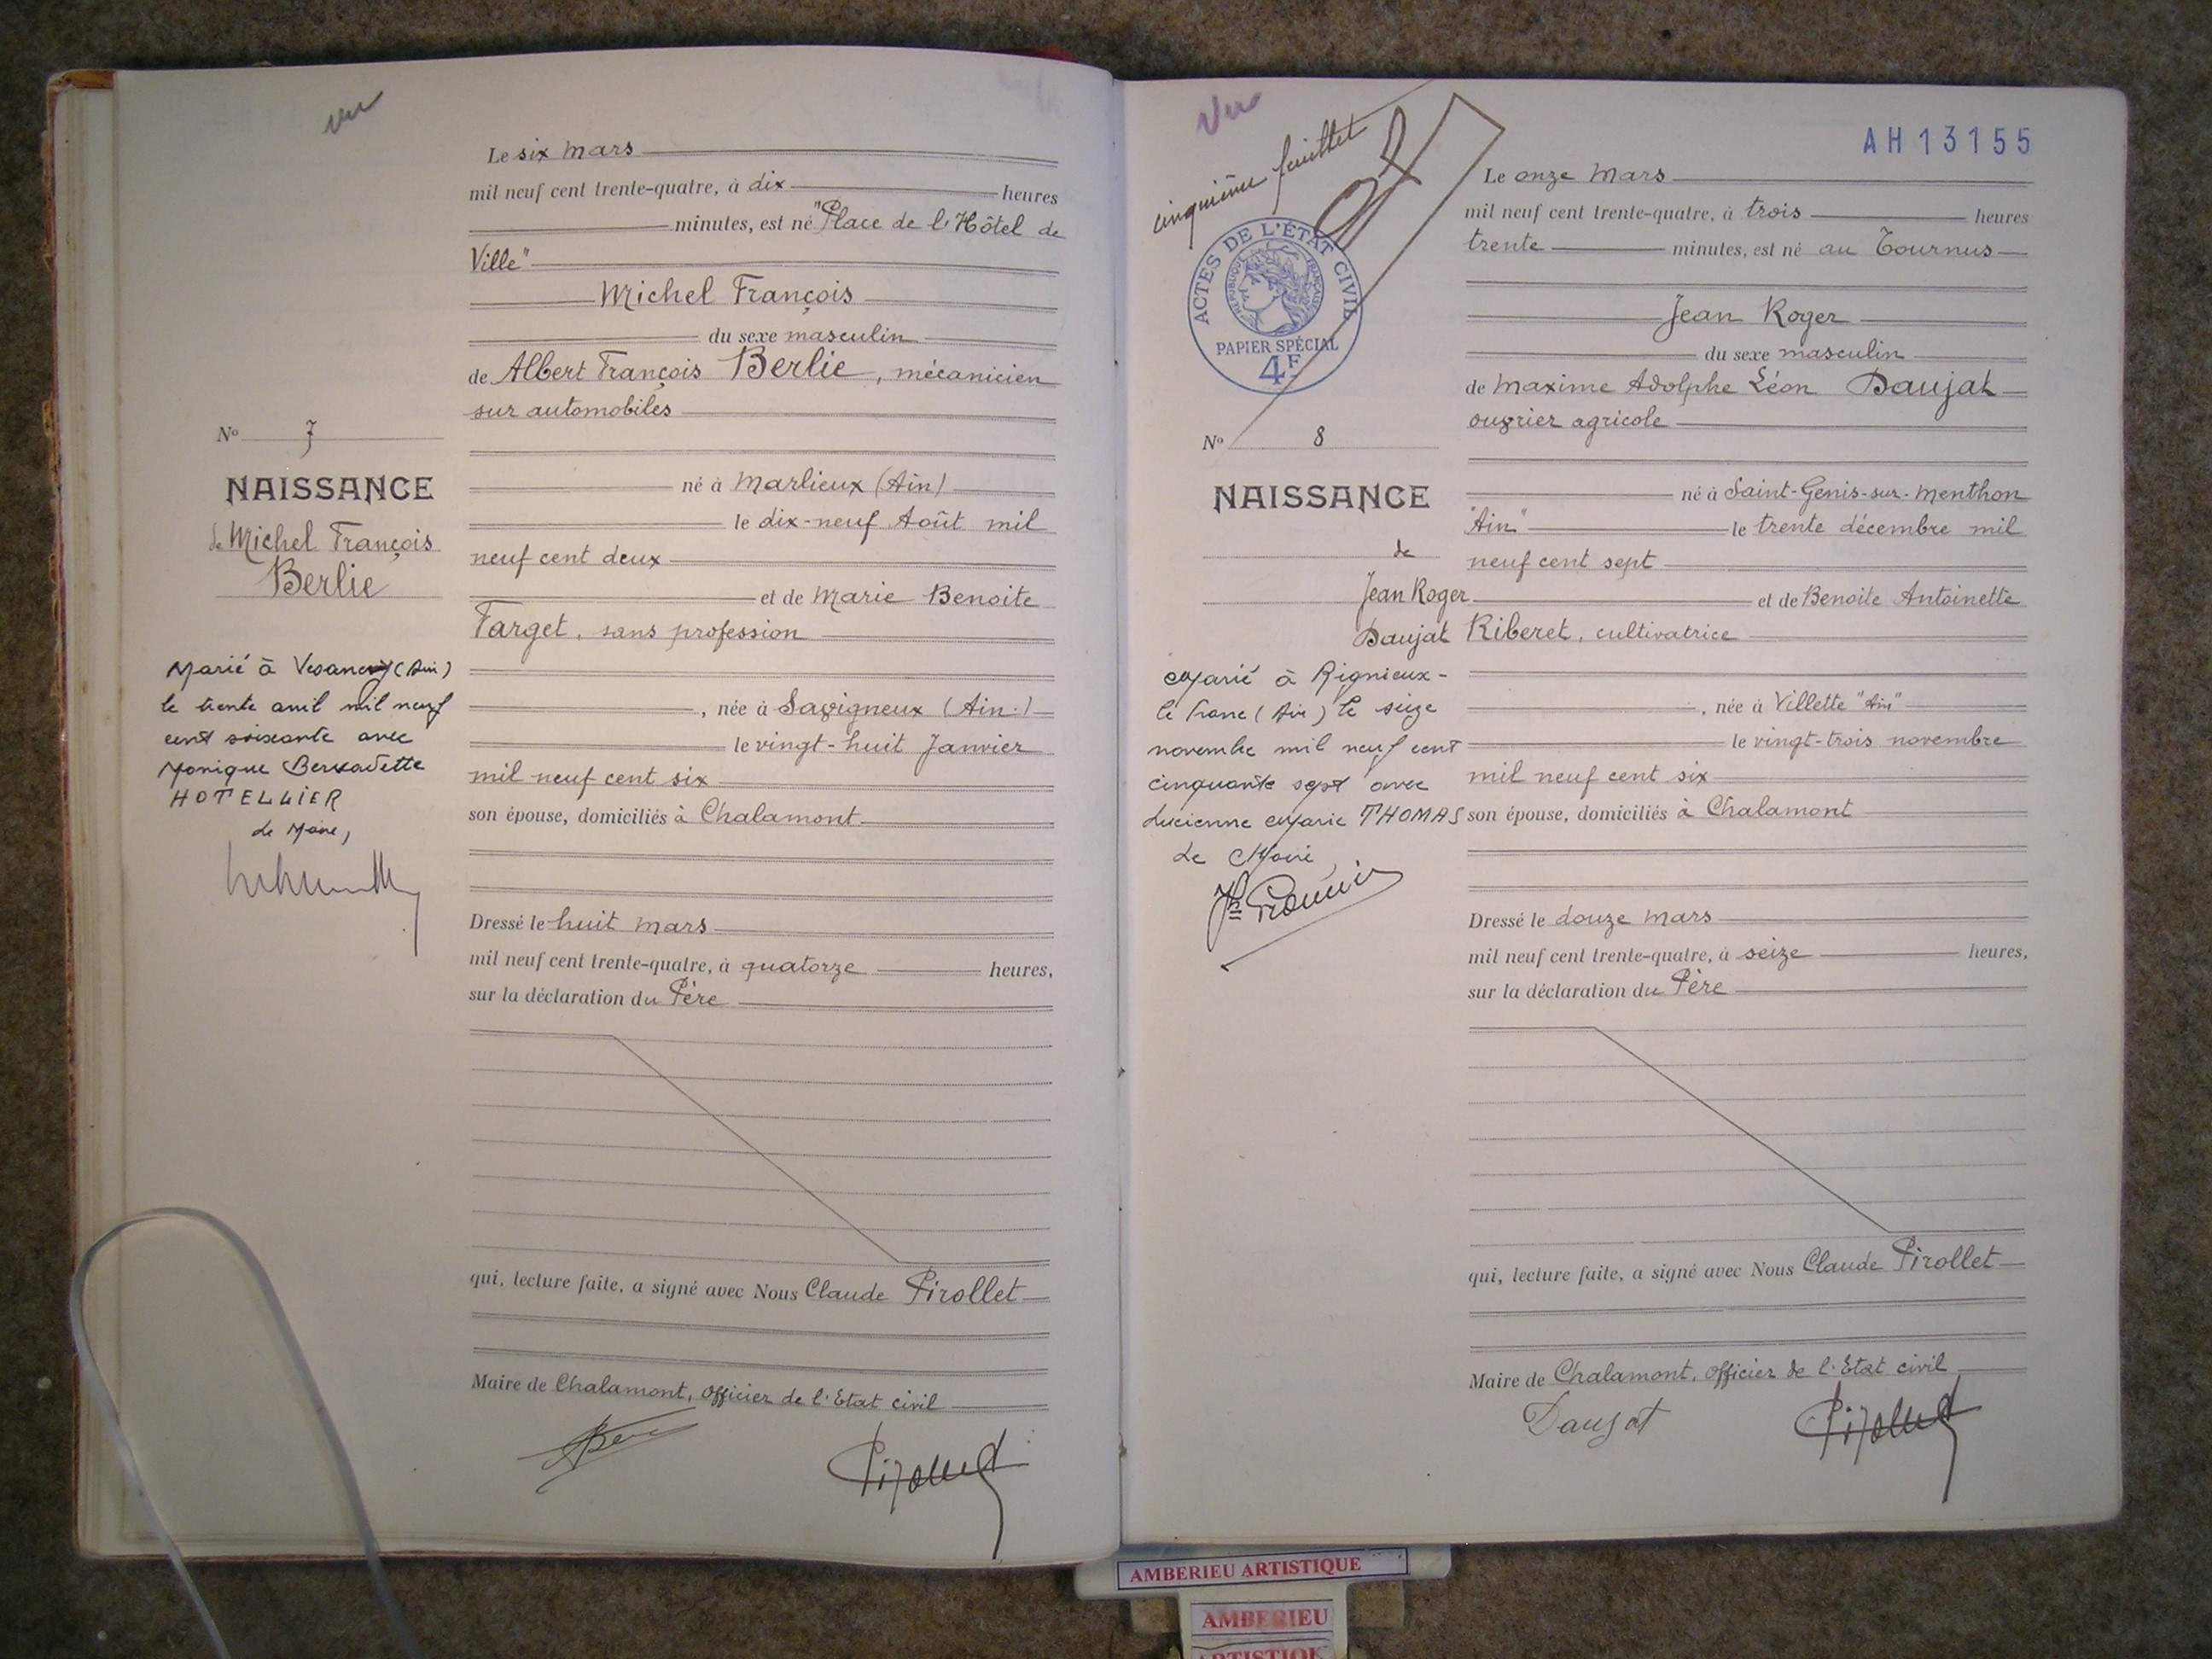 vu
Le six mars
mil neuf cent trente-quatre, à dix heures
minutes, est né "Place de l'Hôtel de
Ville"
Michel François
du sexe masculin
de Albert François Berlie, mécanicien
sur automobiles
né à Marlieux (Ain)
le dix-neuf Août mil
neuf cent deux
et de Marie Benoite
Target, sans profession
, née à Savigneux (Ain.)
le vingt-huit Janvier
mil neuf cent six
son épouse, domiciliés à Chalamont
Dressé le huit mars
mil neuf cent trente-quatre, à quatorze heures,
sur la déclaration du Père
qui, lecture faite, a signé avec Nous Claude Pirollet
Maire de Chalamont, officier de l'Etat civil
Pirollet
No 7
NAISSANCE
de Michel François
Berlie
Marié à Vesancy (Ain)
le trente avril mil neuf
cent soixante avec
Monique Bernadette
HOTELLIER
Le Maire,
Vu
cinquième feuillet
ACTES DE L'ÉTAT CIVIL
RÉPUBLIQUE FRANÇAISE
PAPIER SPÉCIAL
4F
AH13155
Le onze mars
mil neuf cent trente-quatre, à trois heures
trente minutes, est né au Tournus
Jean Roger
du sexe masculin
de Maxime Adolphe Léon Daujat
ouvrier agricole
né à Saint-Genis-sur-Menthon
"Ain" le trente décembre mil
neuf cent sept
et de Benoite Antoinette
Riberet, cultivatrice
, née à Villette "Ain"
le vingt-trois novembre
mil neuf cent six
son épouse, domiciliés à Chalamont
Dressé le douze mars
mil neuf cent trente-quatre, à seize heures,
sur la déclaration du Père
qui, lecture faite, a signé avec Nous Claude Pirollet
Maire de Chalamont, officier de l'Etat civil
Daujat Pirollet
No 8
NAISSANCE
de
Jean Roger
Daujat
Marié à Rignieux-
le franc (Ain) le seize
novembre mil neuf cent
cinquante sept avec
Lucienne Marie THOMAS
Le Maire
AMBERIEU ARTISTIQUE
AMBERIEU